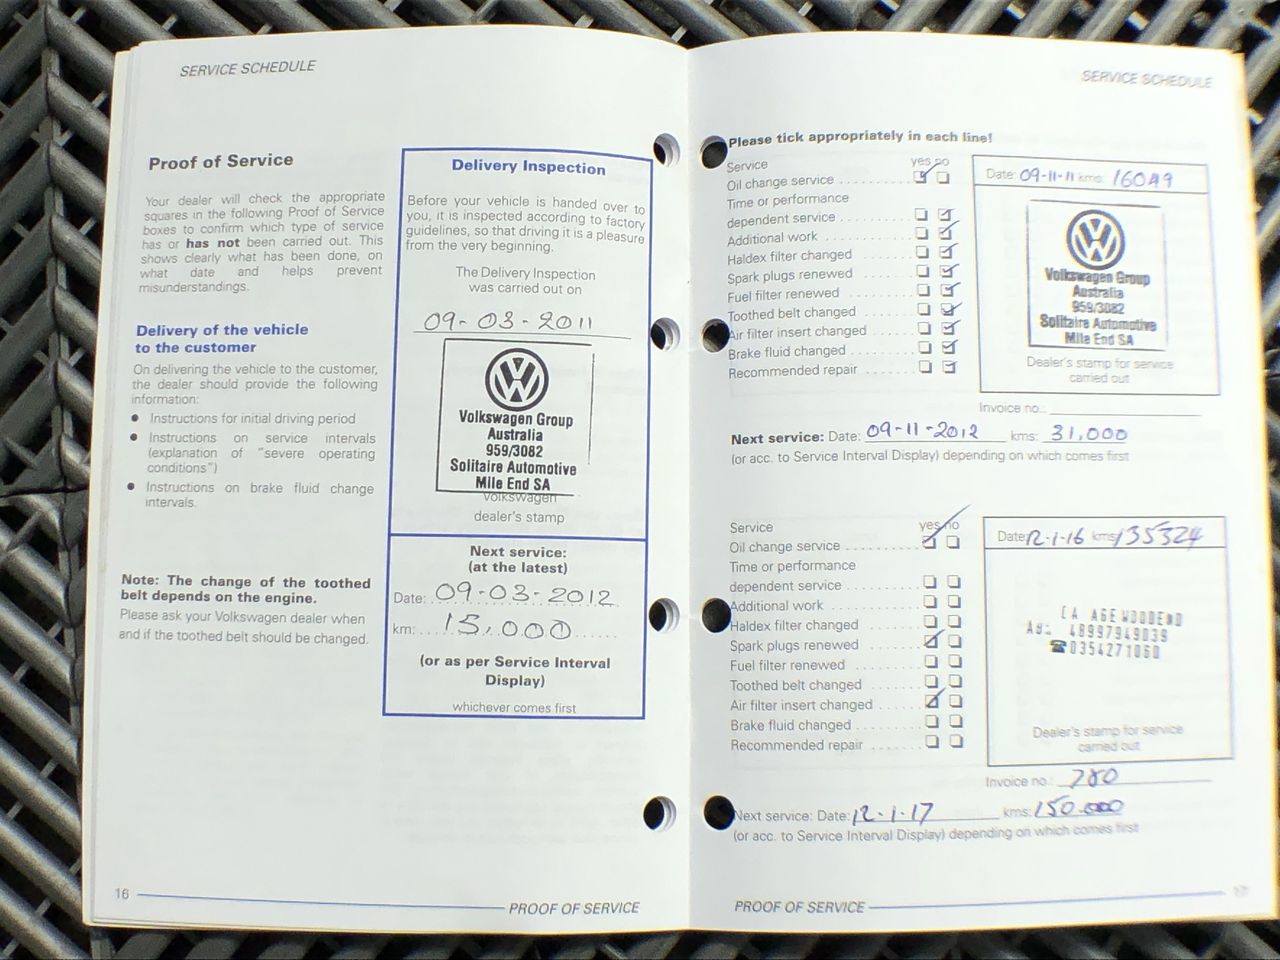 SERVICE SCHEDULE
Proof of Service
Your dealer will check the appropriate
squares in the following Proof of Service
boxes to confirm which type of service
has or has not been carried out. This
shows clearly what has been done, on
what date and helps prevent
misunderstandings.
Delivery of the vehicle
to the customer
On delivering the vehicle to the customer,
the dealer should provide the following
information:
● Instructions for initial driving period
● Instructions on service intervals
(explanation of "severe operating
conditions")
● Instructions on brake fluid change
intervals.
Note: The change of the toothed
belt depends on the engine.
Please ask your Volkswagen dealer when
and if the toothed belt should be changed.
Delivery Inspection
Before your vehicle is handed over to
you, it is inspected according to factory
guidelines, so that driving it is a pleasure
from the very beginning.
The Delivery Inspection
was carried out on
09-03-2011
Volkswagen Group
Australia
959/3082
Solitaire Automotive
Mile End SA
Volkswagen
dealer's stamp
Next service:
(at the latest)
Date: 09-03-2012
km: 15,000
(or as per Service Interval
Display)
whichever comes first
16
PROOF OF SERVICE
SERVICE SCHEDULE
Please tick appropriately in each line!
Service yes no
Oil change service
Time or performance
dependent service
Additional work
Haldex filter changed
Spark plugs renewed
Fuel filter renewed
Toothed belt changed
Air filter insert changed
Brake fluid changed
Recommended repair
Date: 09-11-11 kms: 16049
Volkswagen Group
Australia
959/3082
Solitaire Automotive
Mile End SA
Dealer's stamp for service
carried out
Invoice no.:
Next service: Date: 09-11-2012 kms: 31,000
(or acc. to Service Interval Display) depending on which comes first
Service yes no
Oil change service
Time or performance
dependent service
Additional work
Haldex filter changed
Spark plugs renewed
Fuel filter renewed
Toothed belt changed
Air filter insert changed
Brake fluid changed
Recommended repair
Date: 12-1-16 kms: 135324
48997949039
☎0354271060
Dealer's stamp for service
carried out
Invoice no.: 780
Next service: Date: 12-1-17 kms: 150.000
(or acc. to Service Interval Display) depending on which comes first
PROOF OF SERVICE